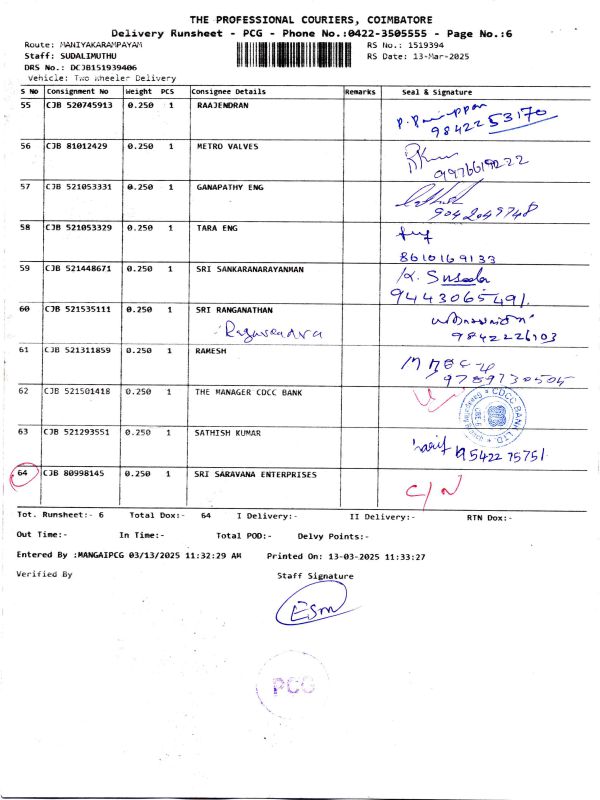 THE PROFESSIONAL COURIERS, COIMBATORE
Delivery Runsheet - PCG - Phone No.:0422-3505555 - Page No.:6
Route: MANIYAKARAMPAYAM RS No.: 1519394
Staff: SUDALIMUTHU RS Date: 13-Mar-2025
DRS No.: DCJB151939406
Vehicle: Two Wheeler Delivery
S No Consignment No Weight PCS Consignee Details Remarks Seal & Signature
55 CJB 520745913 0.250 1 RAAJENDRAN
98422 53170
56 CJB 81012429 0.250 1 METRO VALVES
9976619222
57 CJB 521053331 0.250 1 GANAPATHY ENG
9042049748
58 CJB 521053329 0.250 1 TARA ENG
8610169133
59 CJB 521448671 0.250 1 SRI SANKARANARAYANMAN K. Suseela
9443065491.
60 CJB 521535111 0.250 1 SRI RANGANATHAN
Ragavendra 9842226103
61 CJB 521311859 0.250 1 RAMESH
9789730504
62 CJB 521501418 0.250 1 THE MANAGER CDCC BANK
CDCC BANK LTD.
63 CJB 521293551 0.250 1 SATHISH KUMAR
9542275751
64 CJB 80998145 0.250 1 SRI SARAVANA ENTERPRISES
C/N
Tot. Runsheet:- 6 Total Dox:- 64 I Delivery:- II Delivery:- RTN Dox:-
Out Time:- In Time:- Total POD:- Delvy Points:-
Entered By :MANGAIPCG 03/13/2025 11:32:29 AM Printed On: 13-03-2025 11:33:27
Verified By Staff Signature
ESM
PCG